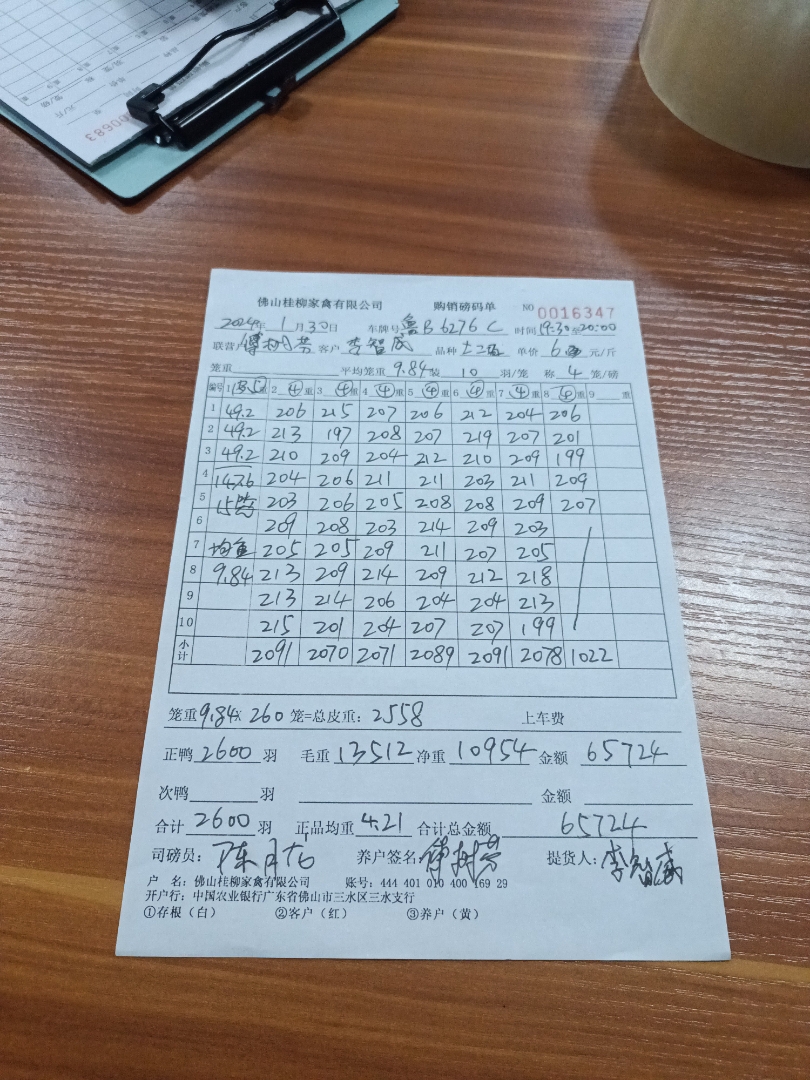 00683
佛山桂柳家禽有限公司 购销磅码单 NO 0016347
2024年 1月30日 车牌号 鲁B 6276 C 时间 19:30至20:00
联营户 傅树芳 客户 李智威 品种 单价 6 元/斤
笼重 平均笼重 9.84 装 10 羽/笼 称 4 笼/磅
编号 1 (35) 重 2 ④ 重 3 ④ 重 4 ④ 重 5 ④ 重 6 ④ 重 7 ④ 重 8 重 9 重
1 49.2 206 215 207 206 212 204 206
2 49.2 213 197 208 207 219 207 201
3 49.2 210 209 204 212 210 209 199
4 147.6 204 206 211 211 203 211 209
5 15笼 203 206 205 208 208 209 207
6 209 208 203 214 209 203
7 均重 205 205 209 211 207 205
8 9.84 213 209 214 209 212 218
9 213 214 206 204 204 213
10 215 201 204 207 207 199
小计 2091 2070 2071 2089 2091 2078 1022
笼重 9.84 X 260 笼=总皮重: 2558 上车费
正鸭 2600 羽 毛重 13512 净重 10954 金额 65724
次鸭 羽 金额
合计 2600 羽 正品均重 4.21 合计总金额 65724
司磅员: 陈月龙 养户签名: 傅树芳 提货人: 李智威
户 名: 佛山桂柳家禽有限公司 账号: 444 401 010 400 169 29
开户行: 中国农业银行广东省佛山市三水区三水支行
①存根（白） ②客户（红） ③养户（黄）